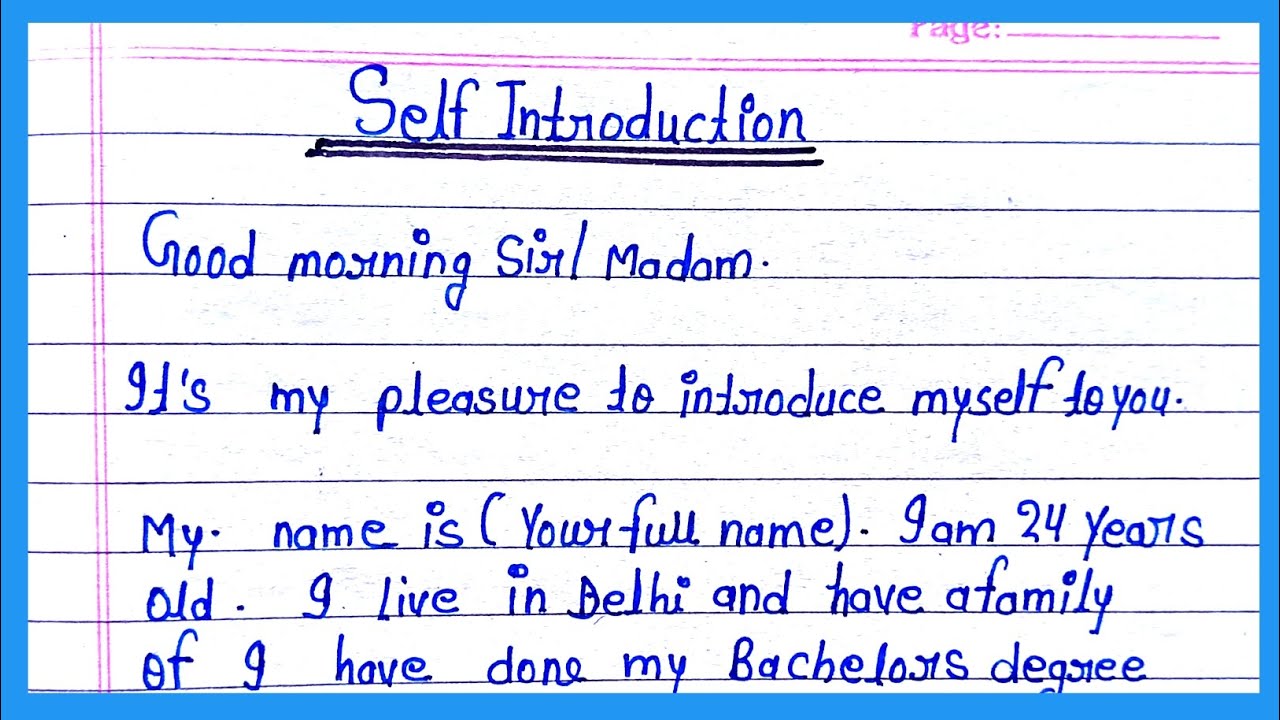 Page:
Self Introduction
Good morning Sir/ Madam.
It's my pleasure to introduce myself to you.
My. name is (Your full name). I am 24 years
old. I live in Delhi and have a family
of I have done my Bachelors degree